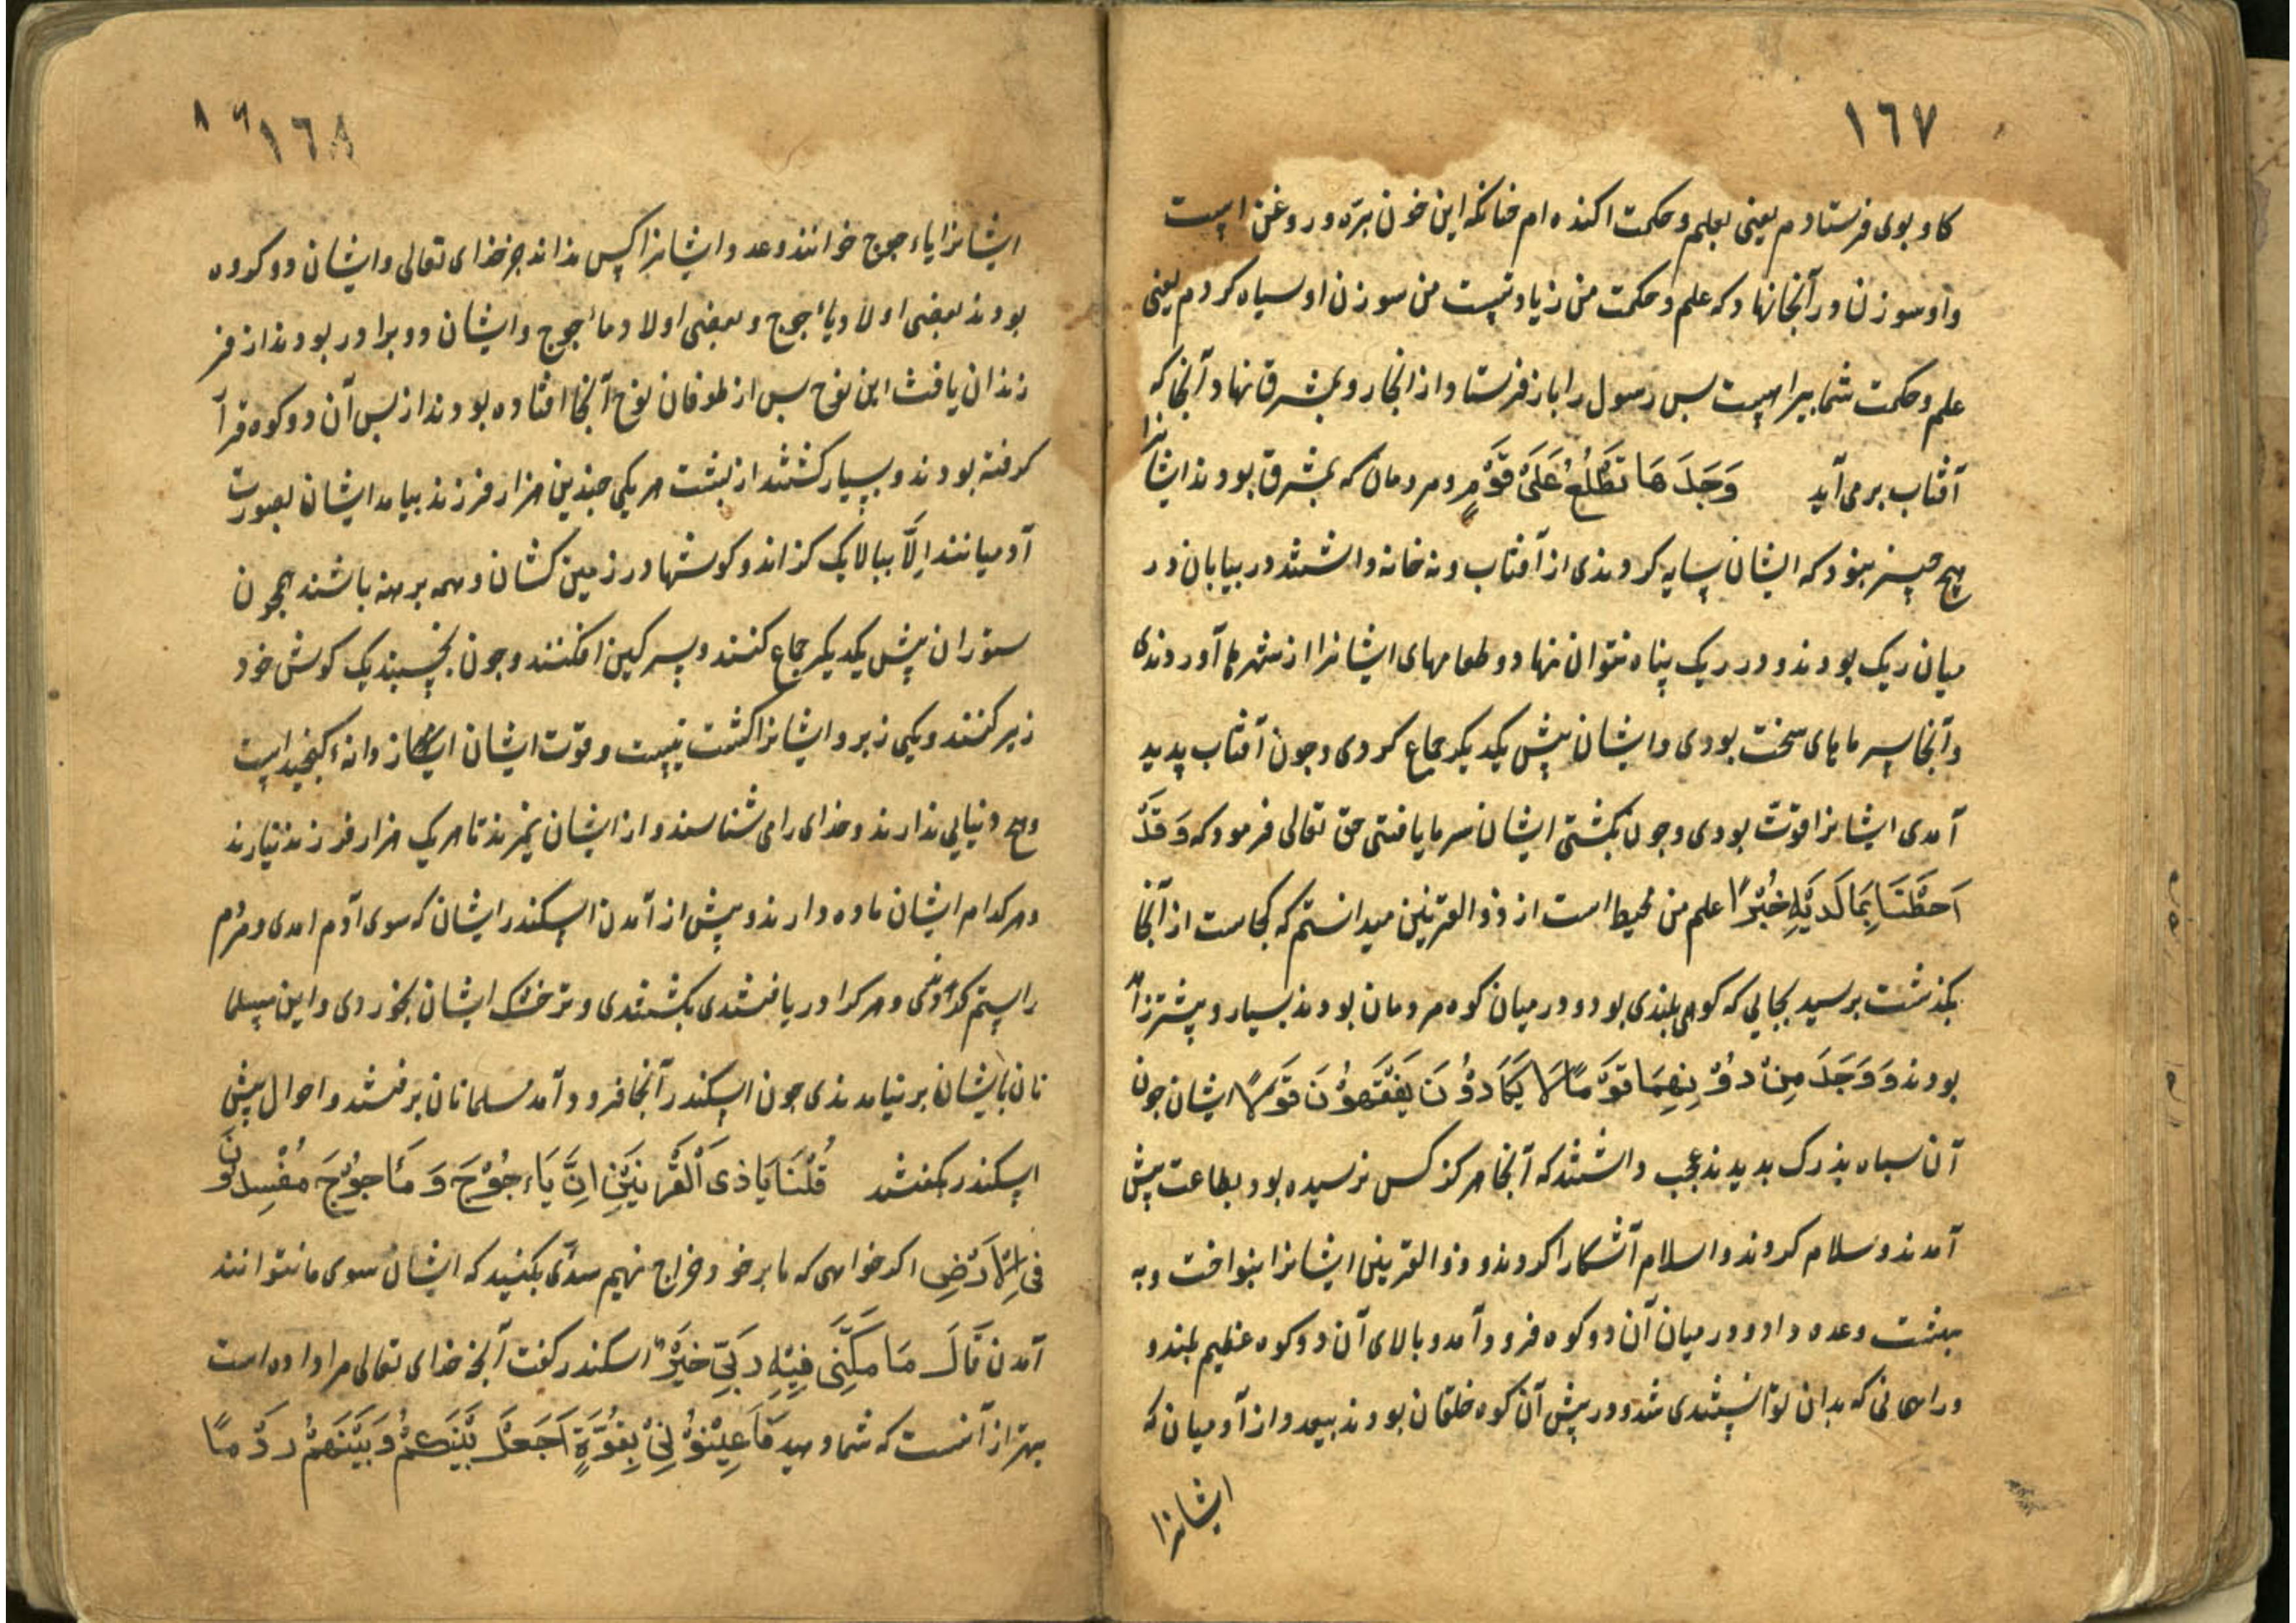 ١٦٧
کاو بوی فرستادم یعنی بعلم و حکمت اکنده ام چنانکه این خون بتره و روغن است
و او سوزن در آنجا نهاد که علم و حکمت من زیادتیست من سوزن او سیاه کردم یعنی
علم و حکمت شما بیراهیست بس رسول را باز فرستاد و از انجا رو بمشرق نهاد آنجا که
آفتاب برمی آید وَجَدَهَا تَطْلُعُ عَلَیٰ قَوْمٍ و مردمان که بمشرق بودند ایشانرا
هیچ چیز نبود که ایشان سایه کردندی از آفتاب و نه خانه داشتند در بیابان در
میان ریک بودند و در ریک پناه نتوان نهاد و طعامهای ایشانرا از شهرها آوردندی
و آنجا سرمای سخت بودی و ایشان پیش یکدیکر جماع کردی و چون آفتاب پدید
آمدی ایشانرا قوت بودی و چون بکشتی ایشان سرما یافتی حق تعالی فرمود که وَقَدْ
اَحَطْنَا بِمَا لَدَیْهِ خُبْرًا علم من محیط است از ذوالقرنین میدانستم که کجاست از آنجا
بکذشت برسید بجایی که کوهی بلندی بود و در میان کوه مردمان بودند بسیار و پیشتر زاد
بودند وَ وَجَدَ مِنْ دُوْنِهِمَا قَوْمًا لَا یَکَادُوْنَ یَفْقَهُوْنَ قَوْلًا ایشان جون
آن سپاه بزرک بدیدند عجب داشتند که آنجا هرکز کس نرسیده بود بطاعت پیش
آمدند و سلام کردند و اسلام آشکارا کردند و ذوالقرنین ایشانرا بنواخت و به
بهشت وعده داد و در میان آن دو کوه فرود آمد و بالای آن دو کوه عظیم بلند و
و راهی نی که بدان توانستندی شد و در پیش آن کوه خلقان بودند بیعدد از آدمیان که
ایشانرا
١٦٨
ایشانرا یاءجوج خوانند و عدد ایشانرا کس نداند جز خذای تعالی و ایشان دو کروه
بودند بعضی اولاد یأجوج و بعضی اولاد مأجوج و ایشان دو برادر بودند از فر
زندان یافث ابن نوح بس از طوفان نوح آنجا افتاده بودند از بس آن دو کوه قرآ
کرفته بودند و بسیار کشتند از بشت هر یکی جندین هزار فرزند بیامد ایشان بصورت
آدمیانند اِلَّا ببالا یک کزاند و کوشها در زمین کشان و همه برهنه باشند همجون
ستوران پیش یکدیکر جماع کنند و سرکین افکنند و جون بخسپند یک کوش خود
زیر کنند و یکی زبر و ایشانرا کشت نیست و قوت ایشان از دانهٔ کنجید است
و هیچ دنیایی ندارند و خذای را می شناسند و از ایشان نمیرند تا هر یک هزار فرزند نیارند
و هر کدام ایشان ماده دارند و پیش از آمدن اسکندر ایشان که سوی آدم امدی و مردم
را ستم کردندی و هر کرا دریافتندی بکشتندی و تر خشک ایشان بخوردی و این مسلما
نان با ایشان برنیامدندی جون اسکندر آنجا فرود آمد مسلمانان برفتند و احوال پیش
اسکندر بکفتند قُلْنَا یَا ذِی اَلْقَرْنَیْنِ اِنَّ یَاءجُوْجَ وَ مَأجُوْجَ مُفْسِدُوْنَ
فِی الْاَرْضِ اکر خواهی که ما بر خود خراج نهیم سدّی بکنید که ایشان سوی ما نتوانند
آمدن قَالَ مَا مَکَّنِّی فِیْهِ رَبِّی خَیْرٌ اسکندر کفت آنج خذای تعالی مرا داده است
بهتر از آنست که شما دهید فَاَعِیْنُوْنِیْ بِقُوَّةٍ اَجْعَلْ بَیْنَکُمْ وَبَیْنَهُمْ رَدْمًا